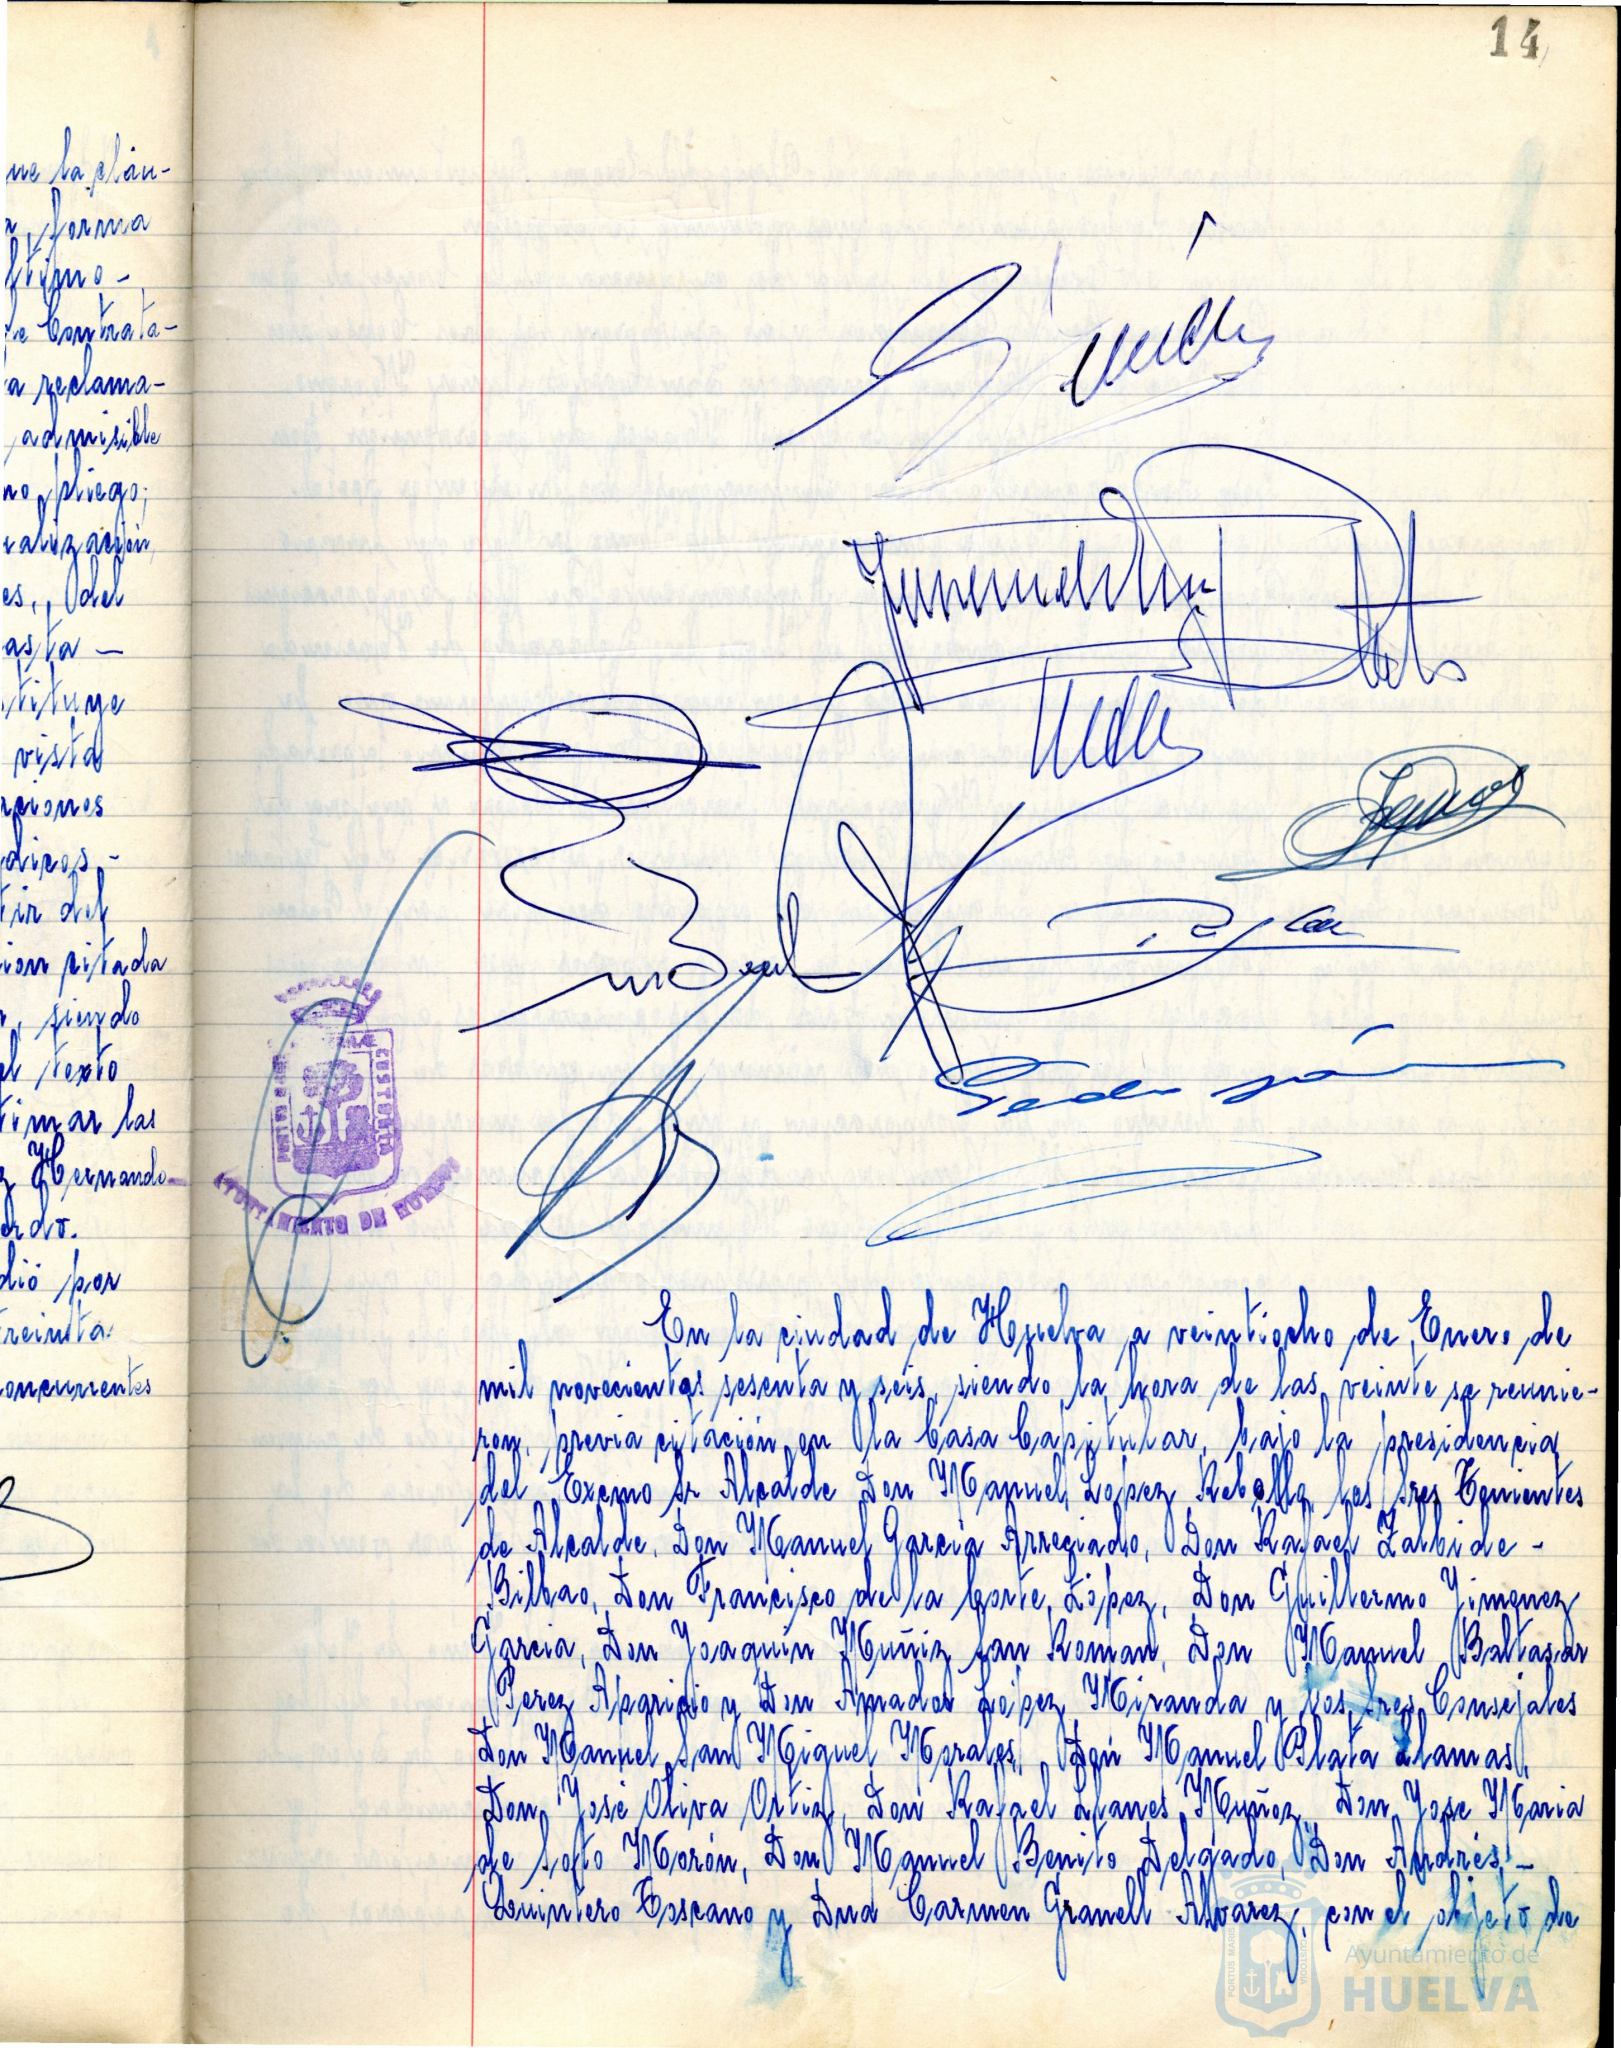 14
ne la cláu-
forma
ltimo-
de Contrata-
a reclama-
admisible
no pliego;
ralización,
es, del
asta —
stituye
vista
rciones
dicos,-
tir del
ion citada
r, siendo
el texto
timar las
z Hernando-
erdo.
dió por
treinta
concurrentes
PORTUS MARIS
CUSTODIA
AYUNTAMIENTO DE HUELVA
En la ciudad de Huelva a veintiocho de Enero de
mil novecientos sesenta y seis, siendo la hora de las veinte se reunie-
ron, previa citación en la Casa Capitular, bajo la presidencia
del Excmo Sr Alcalde Don Manuel Lopez Rebollo, los Sres Tenientes
de Alcalde, Don Manuel García Arreciado, Don Rafael Zalbide-
Bilbao, Don Francisco de la Corte López, Don Guillermo Jimenez
Garcia, Don Joaquín Muñiz San Roman, Don Manuel Baltasar
Perez Aparicio y Don Amador López Miranda y los Sres Consejales
Don Manuel San Miguel Morales, Don Manuel Plata Llamas,
Don José Oliva Ortiz, Don Rafael Llanes Muñoz, Don Jose Maria
de Soto Morón, Don Manuel Benito Delgado, Don Andrés-
Quintero Toscano y Dña Carmen Granell Alvarez, con el objeto de
PORTUS MARIS
CUSTODIA
Ayuntamiento de
HUELVA